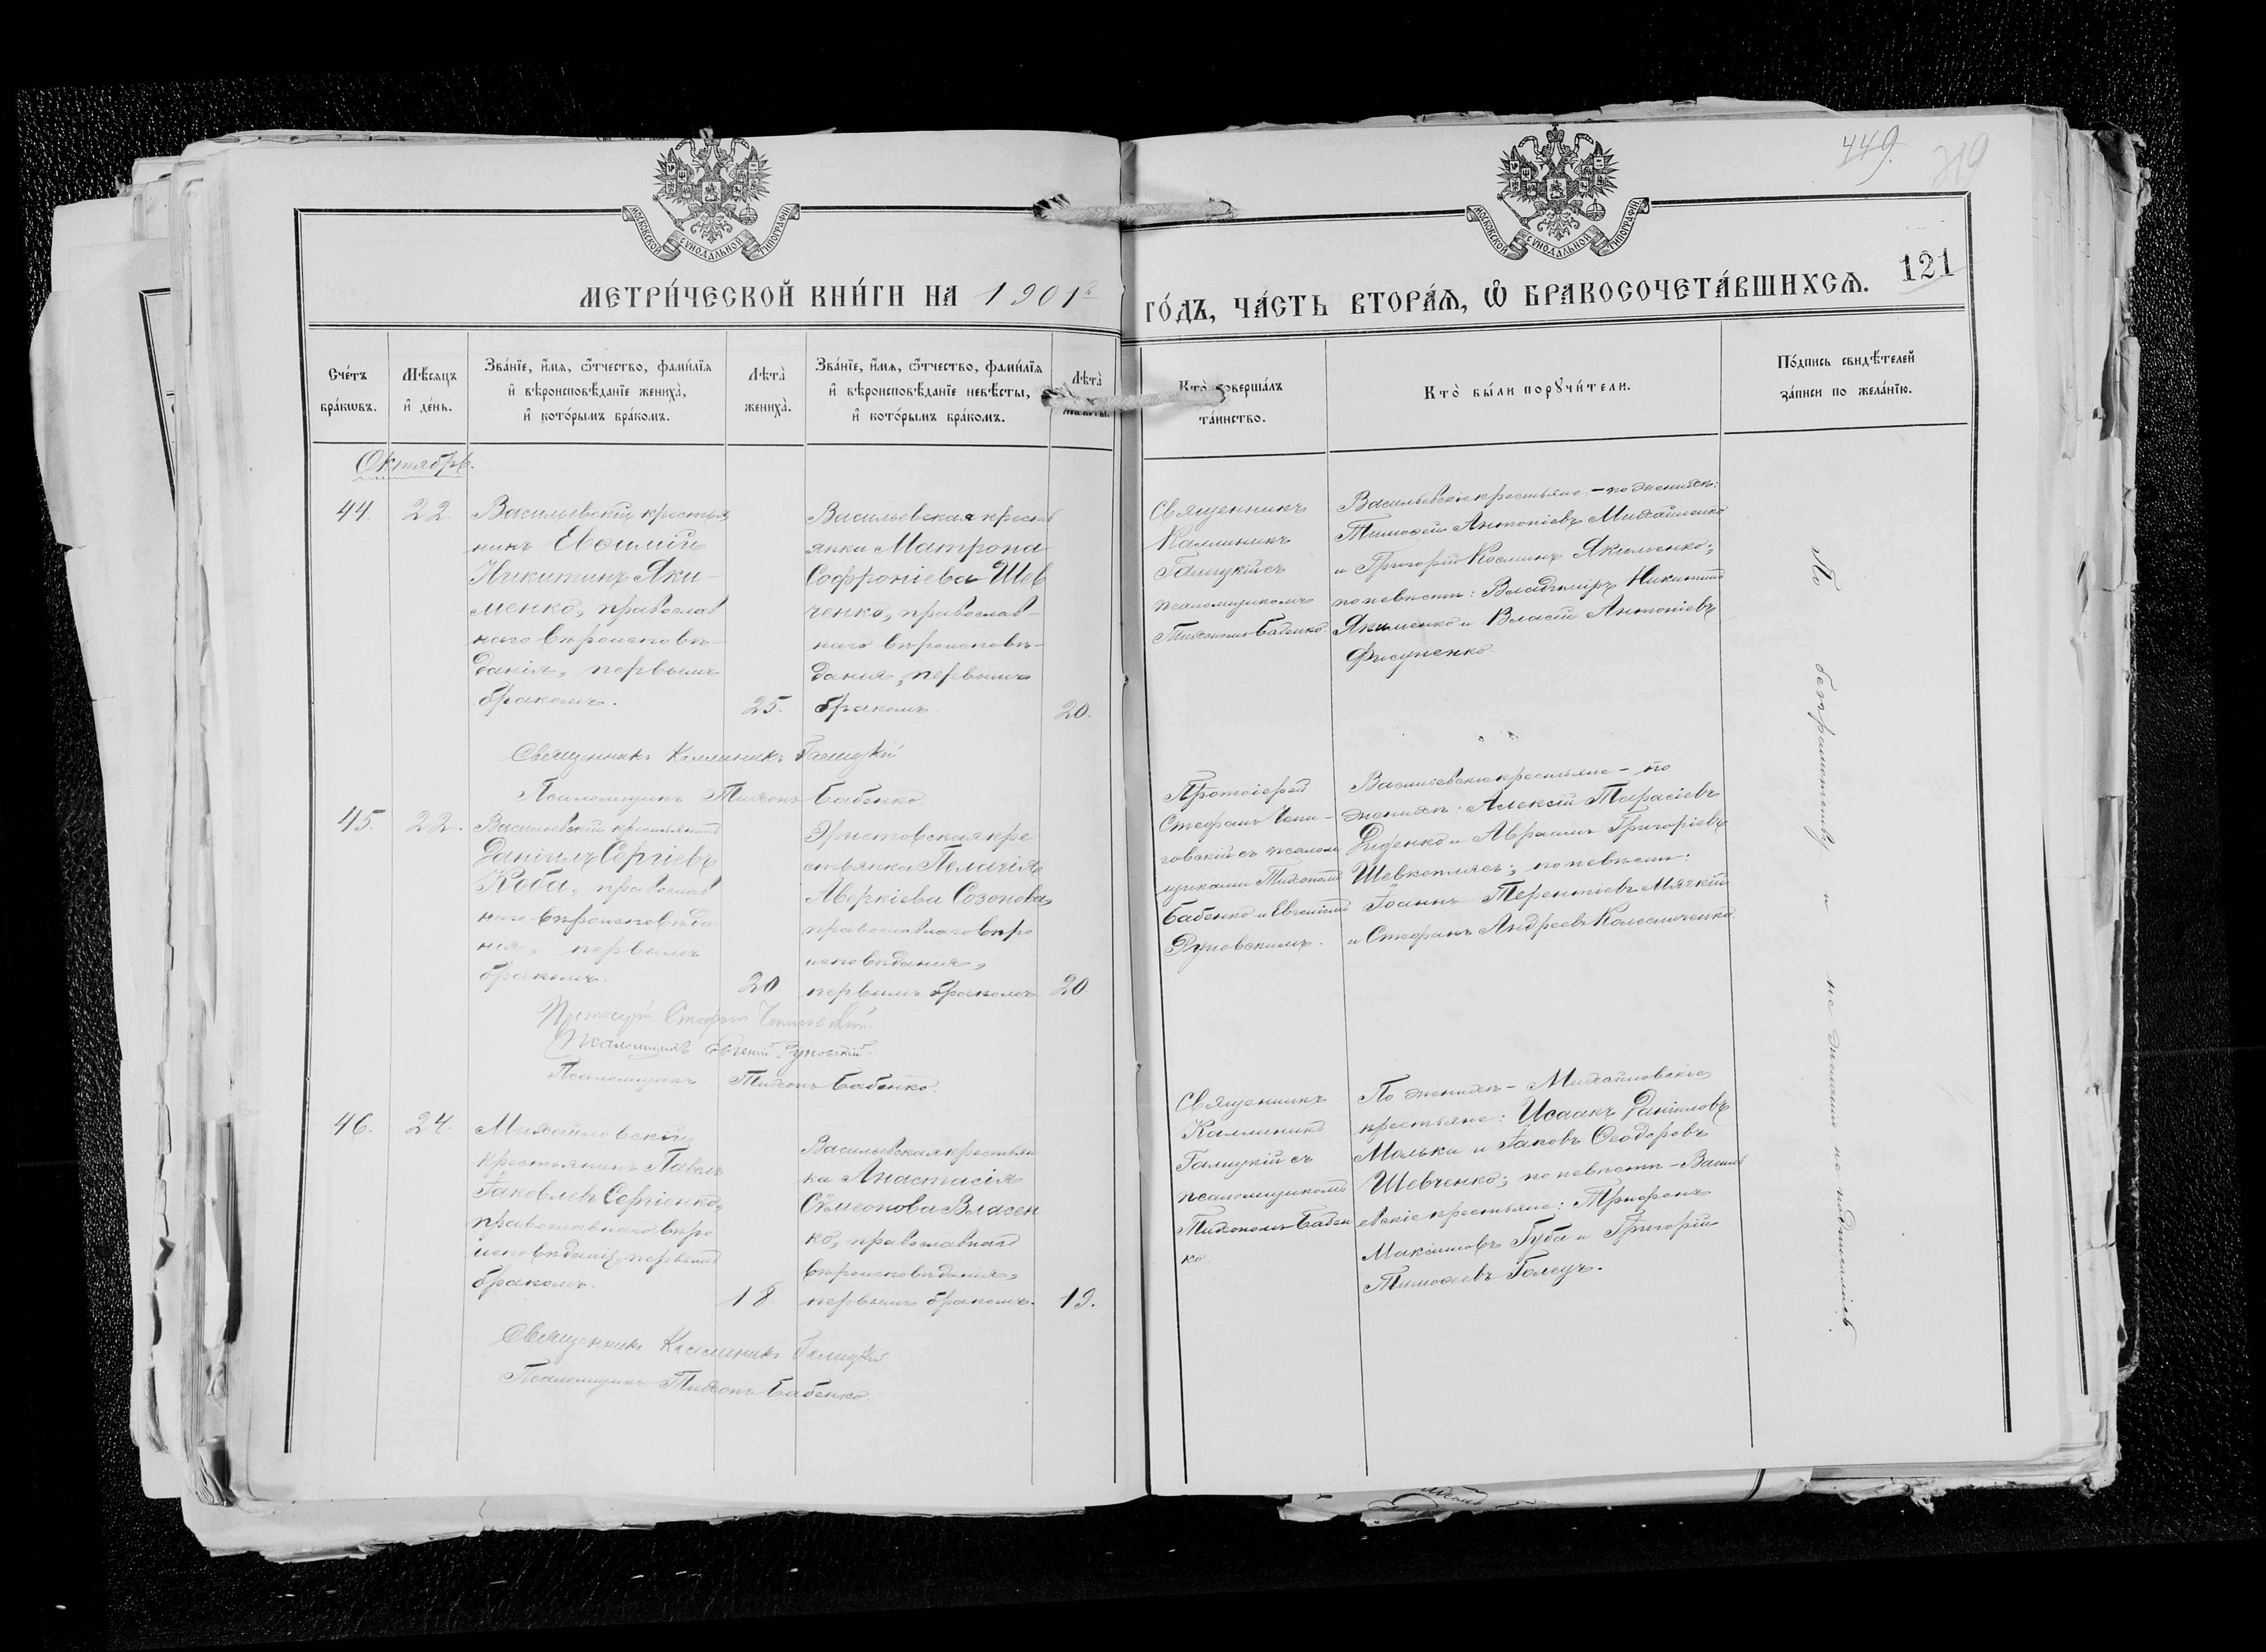 449.
219
МОСКОВСКОЙ СѴНОДАЛЬНОЙ ТИПОГРАФІИ
МОСКОВСКОЙ СѴНОДАЛЬНОЙ ТИПОГРАФІИ
121
МЕТРИ́ЧЕСКОЙ КНИ́ГИ НА 1901й
ГО́ДЪ, ЧА́СТЬ ВТОРА́Ѧ, Ѽ БРАКОСОЧЕТА́ВШИХСѦ.
Сче́тъ
бра́кѡвъ.
Мѣ́сѧцъ
и҆ де́нь.
Зва́нїе, и҆́мѧ, ѻ҆́тчество, фами́лїѧ
и҆ вѣроисповѣ́данїе жениха̀,
и҆ кото́рымъ бра́комъ.
Лѣта̀
жениха̀.
Зва́нїе, и҆́мѧ, ѻ҆́тчество, фами́лїѧ
и҆ вѣроисповѣ́данїе невѣ́сты,
и҆ кото́рымъ бра́комъ.
Лѣта̀
невѣ́сты.
Кто̀ соверша́лъ
та́инство.
Кто̀ бы́ли порꙋчи́тели.
По́дпись свидѣ́телей
за́писи по жела́нїю.
Октябрь.
44.
22.
Васильевскій крестья
нинъ Евѳимій
Никитинъ Яки-
менко, православ
наго вѣроисповѣ-
данія, первымъ
бракомъ.
25.
Васильевская кресть
янка Матрона
Софроніева Шев
ченко, православ-
наго вѣроисповѣ-
данія, первымъ
бракомъ.
20.
Священникъ
Каллиникъ
Галицкій съ
псаломщикомъ
Тихономъ Бабенко.
Васильевскіе крестьяне, - по женихѣ:
Тимоѳей Антоніевъ Михайленко
и Григорій Косминъ Якименко;
по невѣстѣ: Владиміръ Никитинъ
Якименко и Власій Антоніевъ
Фисуненко.
Священникъ Каллиникъ Галицкій
Псаломщикъ Тихонъ Бабенко.
45.
22.
Васильевскій крестьянинъ
Даніилъ Сергіевъ
Коба, православ
наго вѣроисповѣда
нія, первымъ
бракомъ.
20
Христовская кре
стьянка Пелагія
Аверкіева Созонова,
православнаго вѣро
исповѣданія,
первымъ бракомъ.
20.
Протоіерей
Стефанъ Чепи-
говскій съ псалом
щиками Тихономъ
Бабенко и Евгеніемъ
Руновскимъ.
Васильевскіе крестьяне - по
женихѣ: Алексій Тарасіевъ
Диденко и Авраамъ Григоріевъ
Шевкоплясъ; по невѣстѣ:
Іоаннъ Терентіевъ Мягкій
и Стефанъ Андреевъ Колесниченко.
Протоіерей Стефанъ Чепиговскій
Псаломщикъ Евгеній Руновскій.
Псаломщикъ Тихонъ Бабенко.
46.
24.
Михайловскій
крестьянинъ Павелъ
Іаковлевъ Сергіенко,
православнаго вѣро
исповѣданія, первымъ
бракомъ.
18.
Васильевская крестьян
ка Анастасія
Сѵмеонова Власен
ко, православнаго
вѣроисповѣданія,
первымъ бракомъ.
19.
Священникъ
Каллиникъ
Галицкій съ
псаломщикомъ
Тихономъ Бабен
ко.
По женихѣ - Михайловскіе
крестьяне: Исаакъ Даніиловъ
Малька и Іаковъ Ѳеодоровъ
Шевченко; по невѣстѣ - Василь
евскіе крестьяне: Трифонъ
Максимовъ Губа и Григорій
Тимоѳеевъ Голецъ.
Священникъ Каллиникъ Галицкій
Псаломщикъ Тихонъ Бабенко.
По безграмотству и не желанію не подписались.